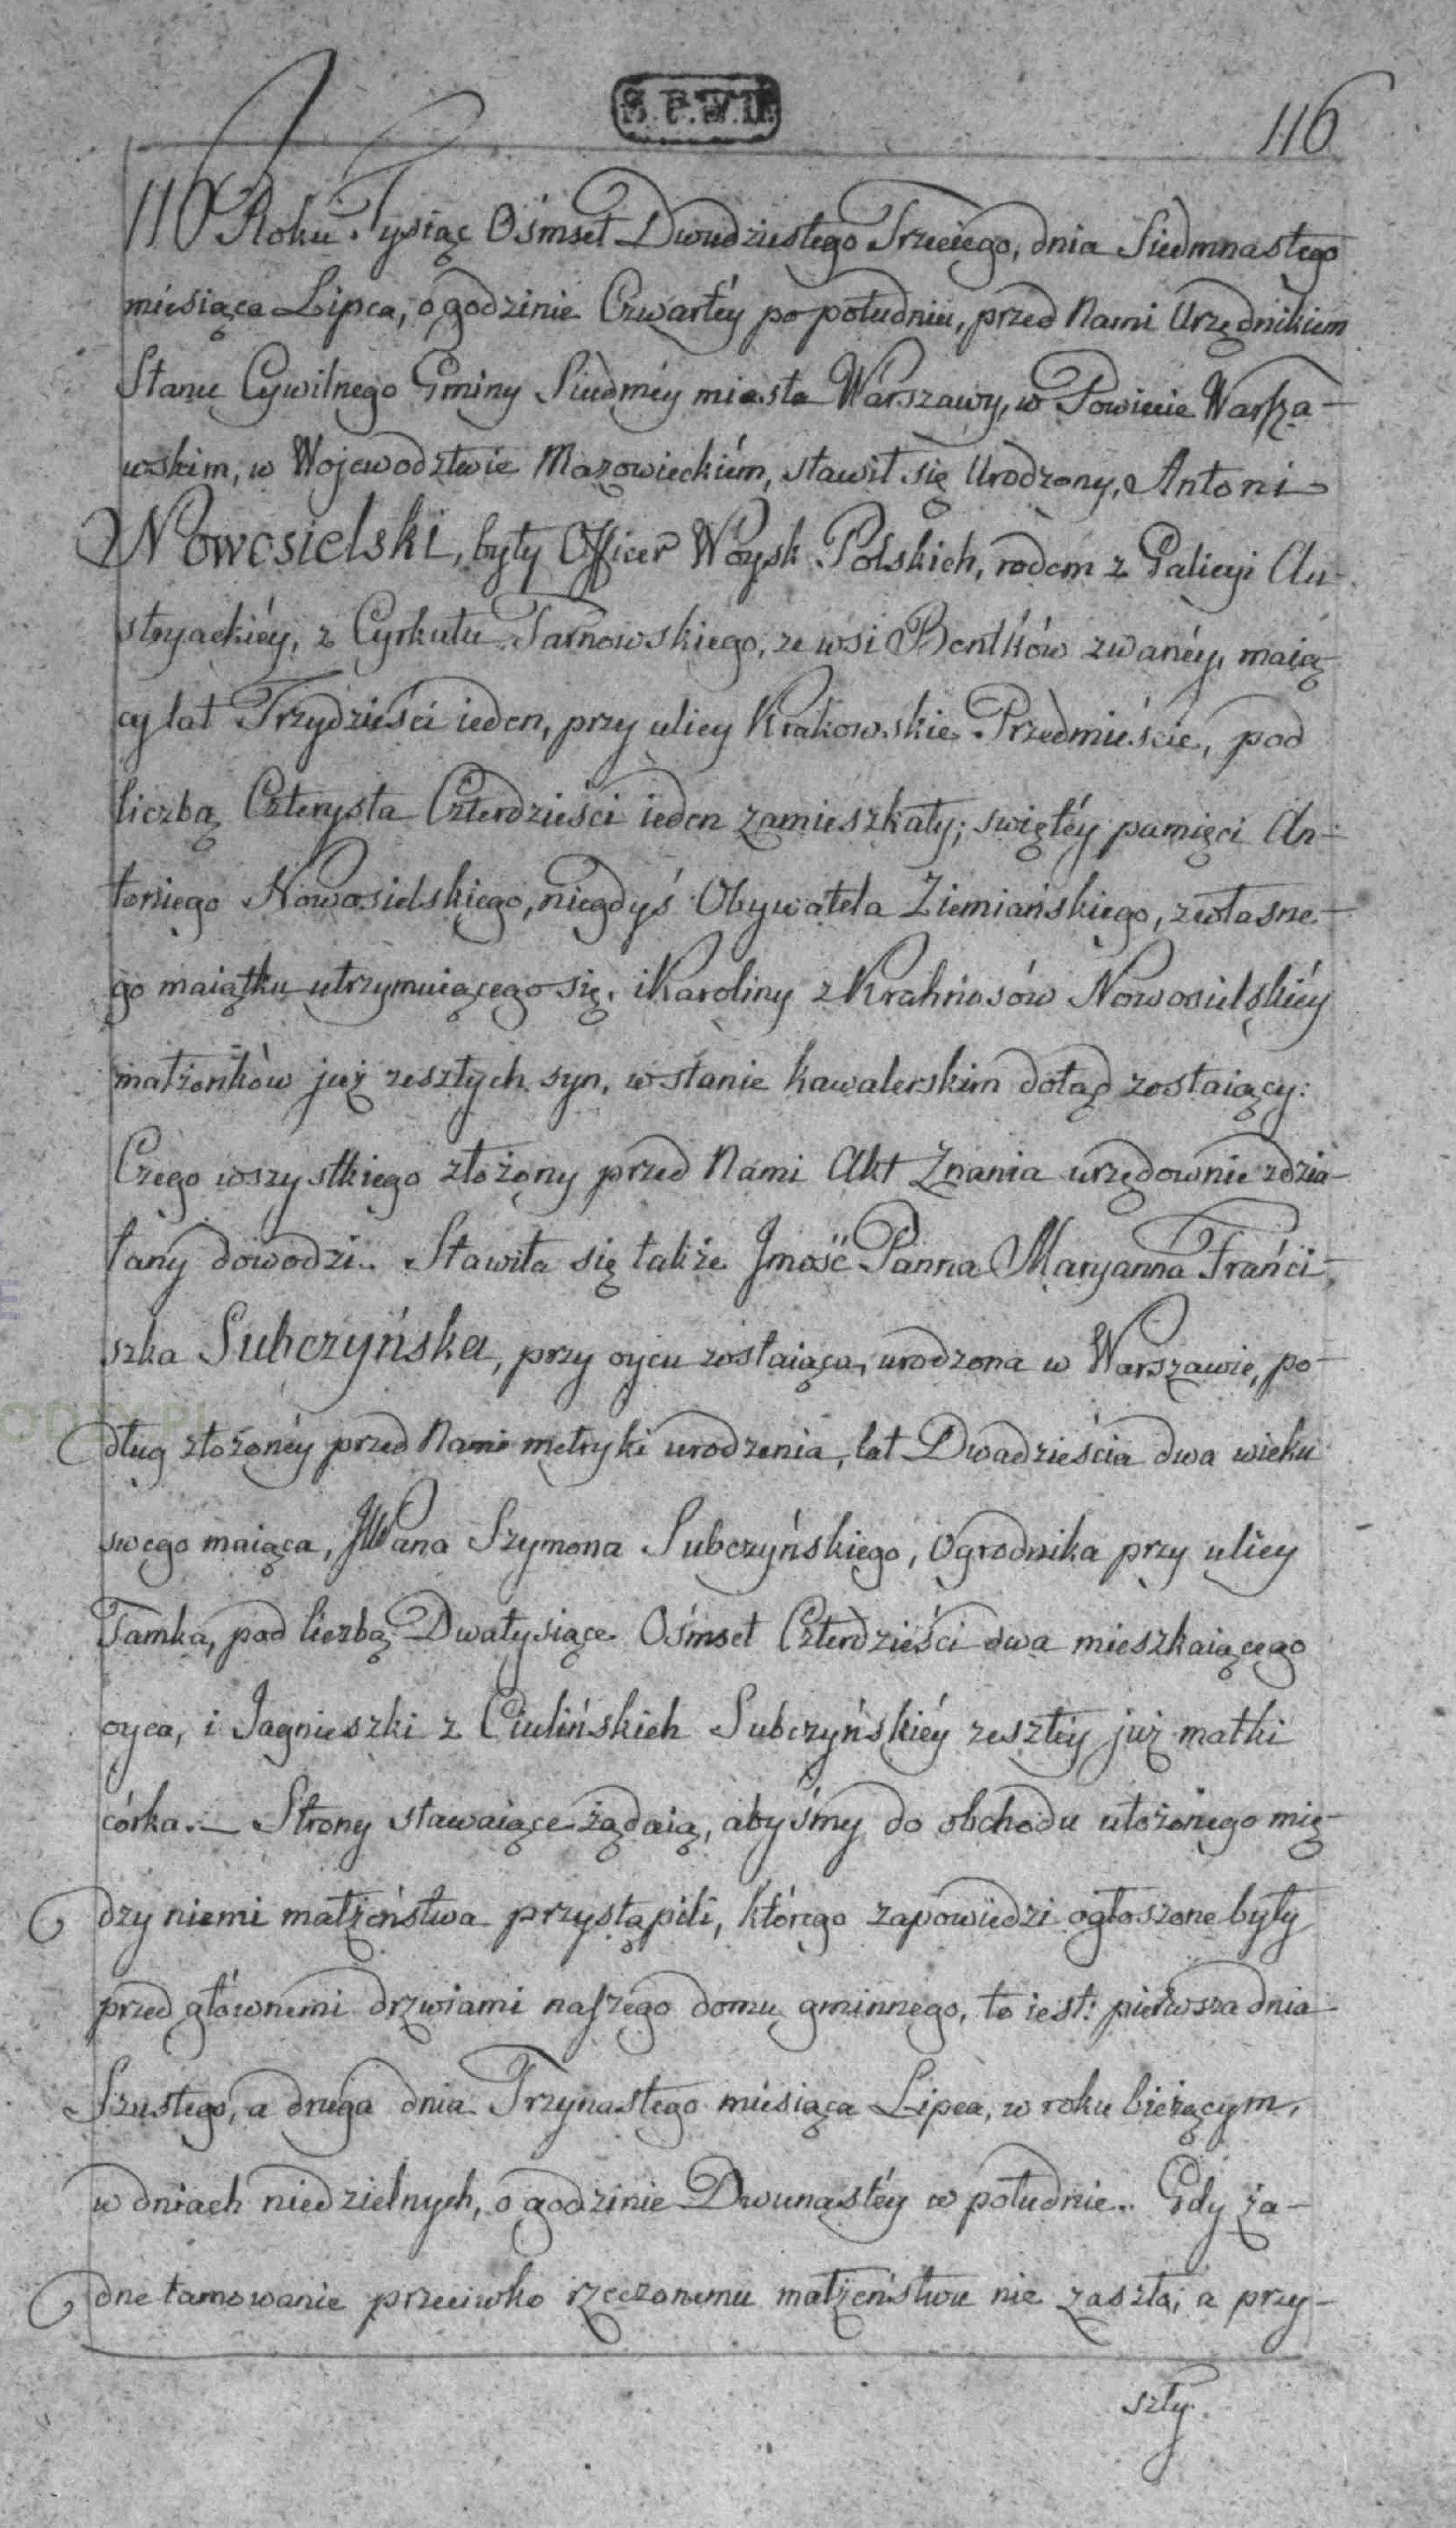 S.P.W.D.
116
116 Roku Tysiąc Ośmset Dwudziestego Trzeciego, dnia Siedmnastego
miesiąca Lipca, o godzinie Czwartéy po południu, przed Nami Urzędnikiem
Stanu Cywilnego Gminy Siudméy miasta Warszawy, w Powiecie Warsza-
wskim, w Wojewodztwie Mazowieckiém, stawił się Urodzony, Antoni
Nowosielski, były Officer Woysk Polskich, rodem z Galicyi Au-
stryackiéy, z Cyrkułu Tarnowskiego, ze wsi zwanéy, maią
cy lat Trzydzieści ieden, przy ulicy Krakowskie Przedmieście, pod
liczbą Czterysta Czterdzieści ieden zamieszkały; swiętéy pamięci An-
toniego Nowosielskiego, niegdyś Obywatela Ziemiańskiego, z własne-
go maiątku utrzymuiącego się, i Karoliny z Nowosielskiéy
małżonków już zeszłych syn, w stanie kawalerskim dotąd zostaiący:
Czego wszystkiego złożony przed Nami Akt Znania urzędownie zdzia-
łany dowodzi.. Stawiła się także Jmość Panna Maryanna Franci-
szka Subczyńska, przy oycu zostaiąca, urodzona w Warszawie, po-
dług złożonéy przed Nami metryki urodzenia, lat Dwadzieścia dwa wieku
swego maiąca, JWPana Szymona Subczyńskiego, Ogrodnika przy ulicy
Tamka, pod liczbą Dwatysiące Ośmset Czterdzieści dwa mieszkaiącego
oyca, i Jagnieszki z Ciulińskich Subczyńskiéy zeszłéy już matki
córka. — Strony stawaiące żądaią, abyśmy do obchodu ułożonego mię-
dzy niemi małżeństwa przystąpili, którego zapowiedzi ogłoszone były
przed głównemi drzwiami naszego domu gminnego, to iest: pierwsza dnia
Szustego, a druga dnia Trzynastego miesiąca Lipca, w roku bieżącym,
w dniach niedzielnych, o godzinie Dwunastéy w południe.. Gdy ża-
dne tamowanie przeciwko rzeczonemu małżeństwu nie zaszło, a przy-
szły